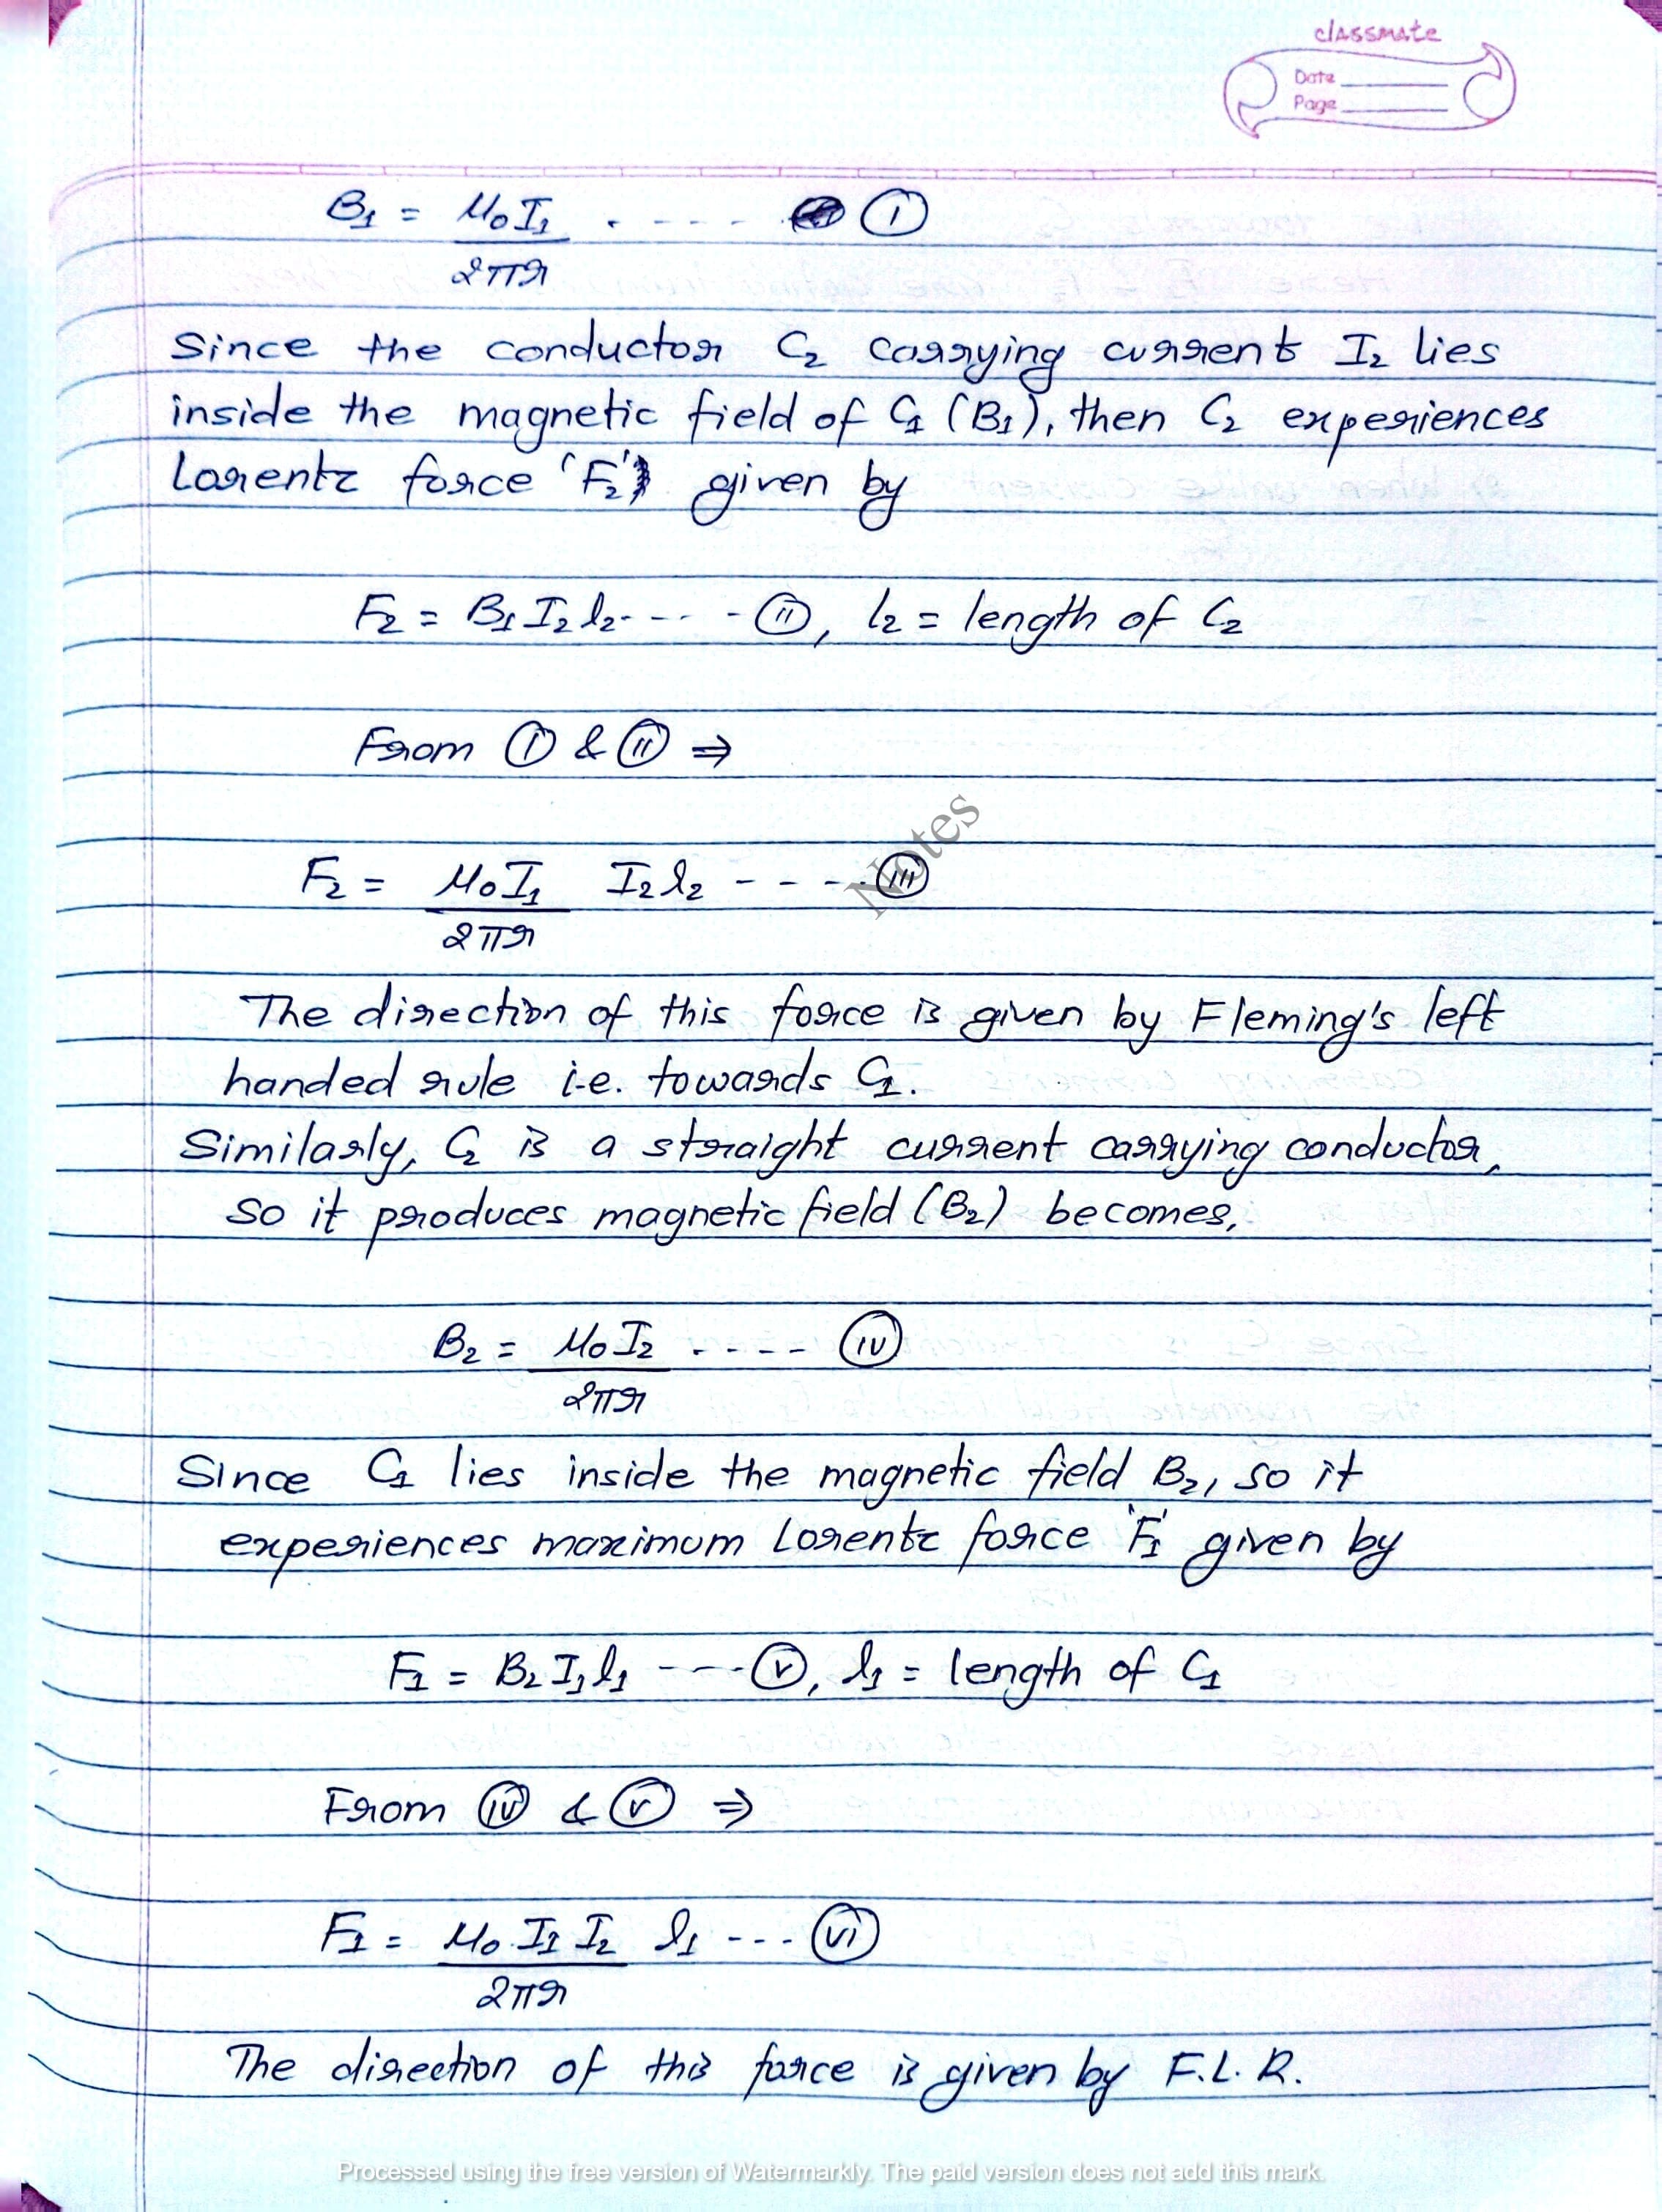 classmate
Date
Page
B₁ = μ₀I₁ . - - - - (i)
2πr
Since the conductor C₂ carrying current I₂ lies
inside the magnetic field of C₁ (B₁), then C₂ experiences
Lorentz force 'F₂' given by
F₂ = B₁I₂l₂- - - - (ii), l₂ = length of C₂
From (i) & (ii) ⇒
Notes
F₂ = μ₀I₁ I₂l₂ - - - - (iii)
2πr
The direction of this force is given by Fleming's left
handed rule i.e. towards C₁.
Similarly, C₂ is a straight current carrying conductor,
so it produces magnetic field (B₂) becomes,
B₂ = μ₀I₂ - - - - (iv)
2πr
Since C₁ lies inside the magnetic field B₂, so it
experiences maximum Lorentz force 'F₁' given by
F₁ = B₂I₁l₁ - - - - (v), l₁ = length of C₁
From (iv) & (v) ⇒
F₁ = μ₀ I₁ I₂ l₁ - - - (vi)
2πr
The direction of this force is given by F.L.R.
Processed using the free version of Watermarkly. The paid version does not add this mark.